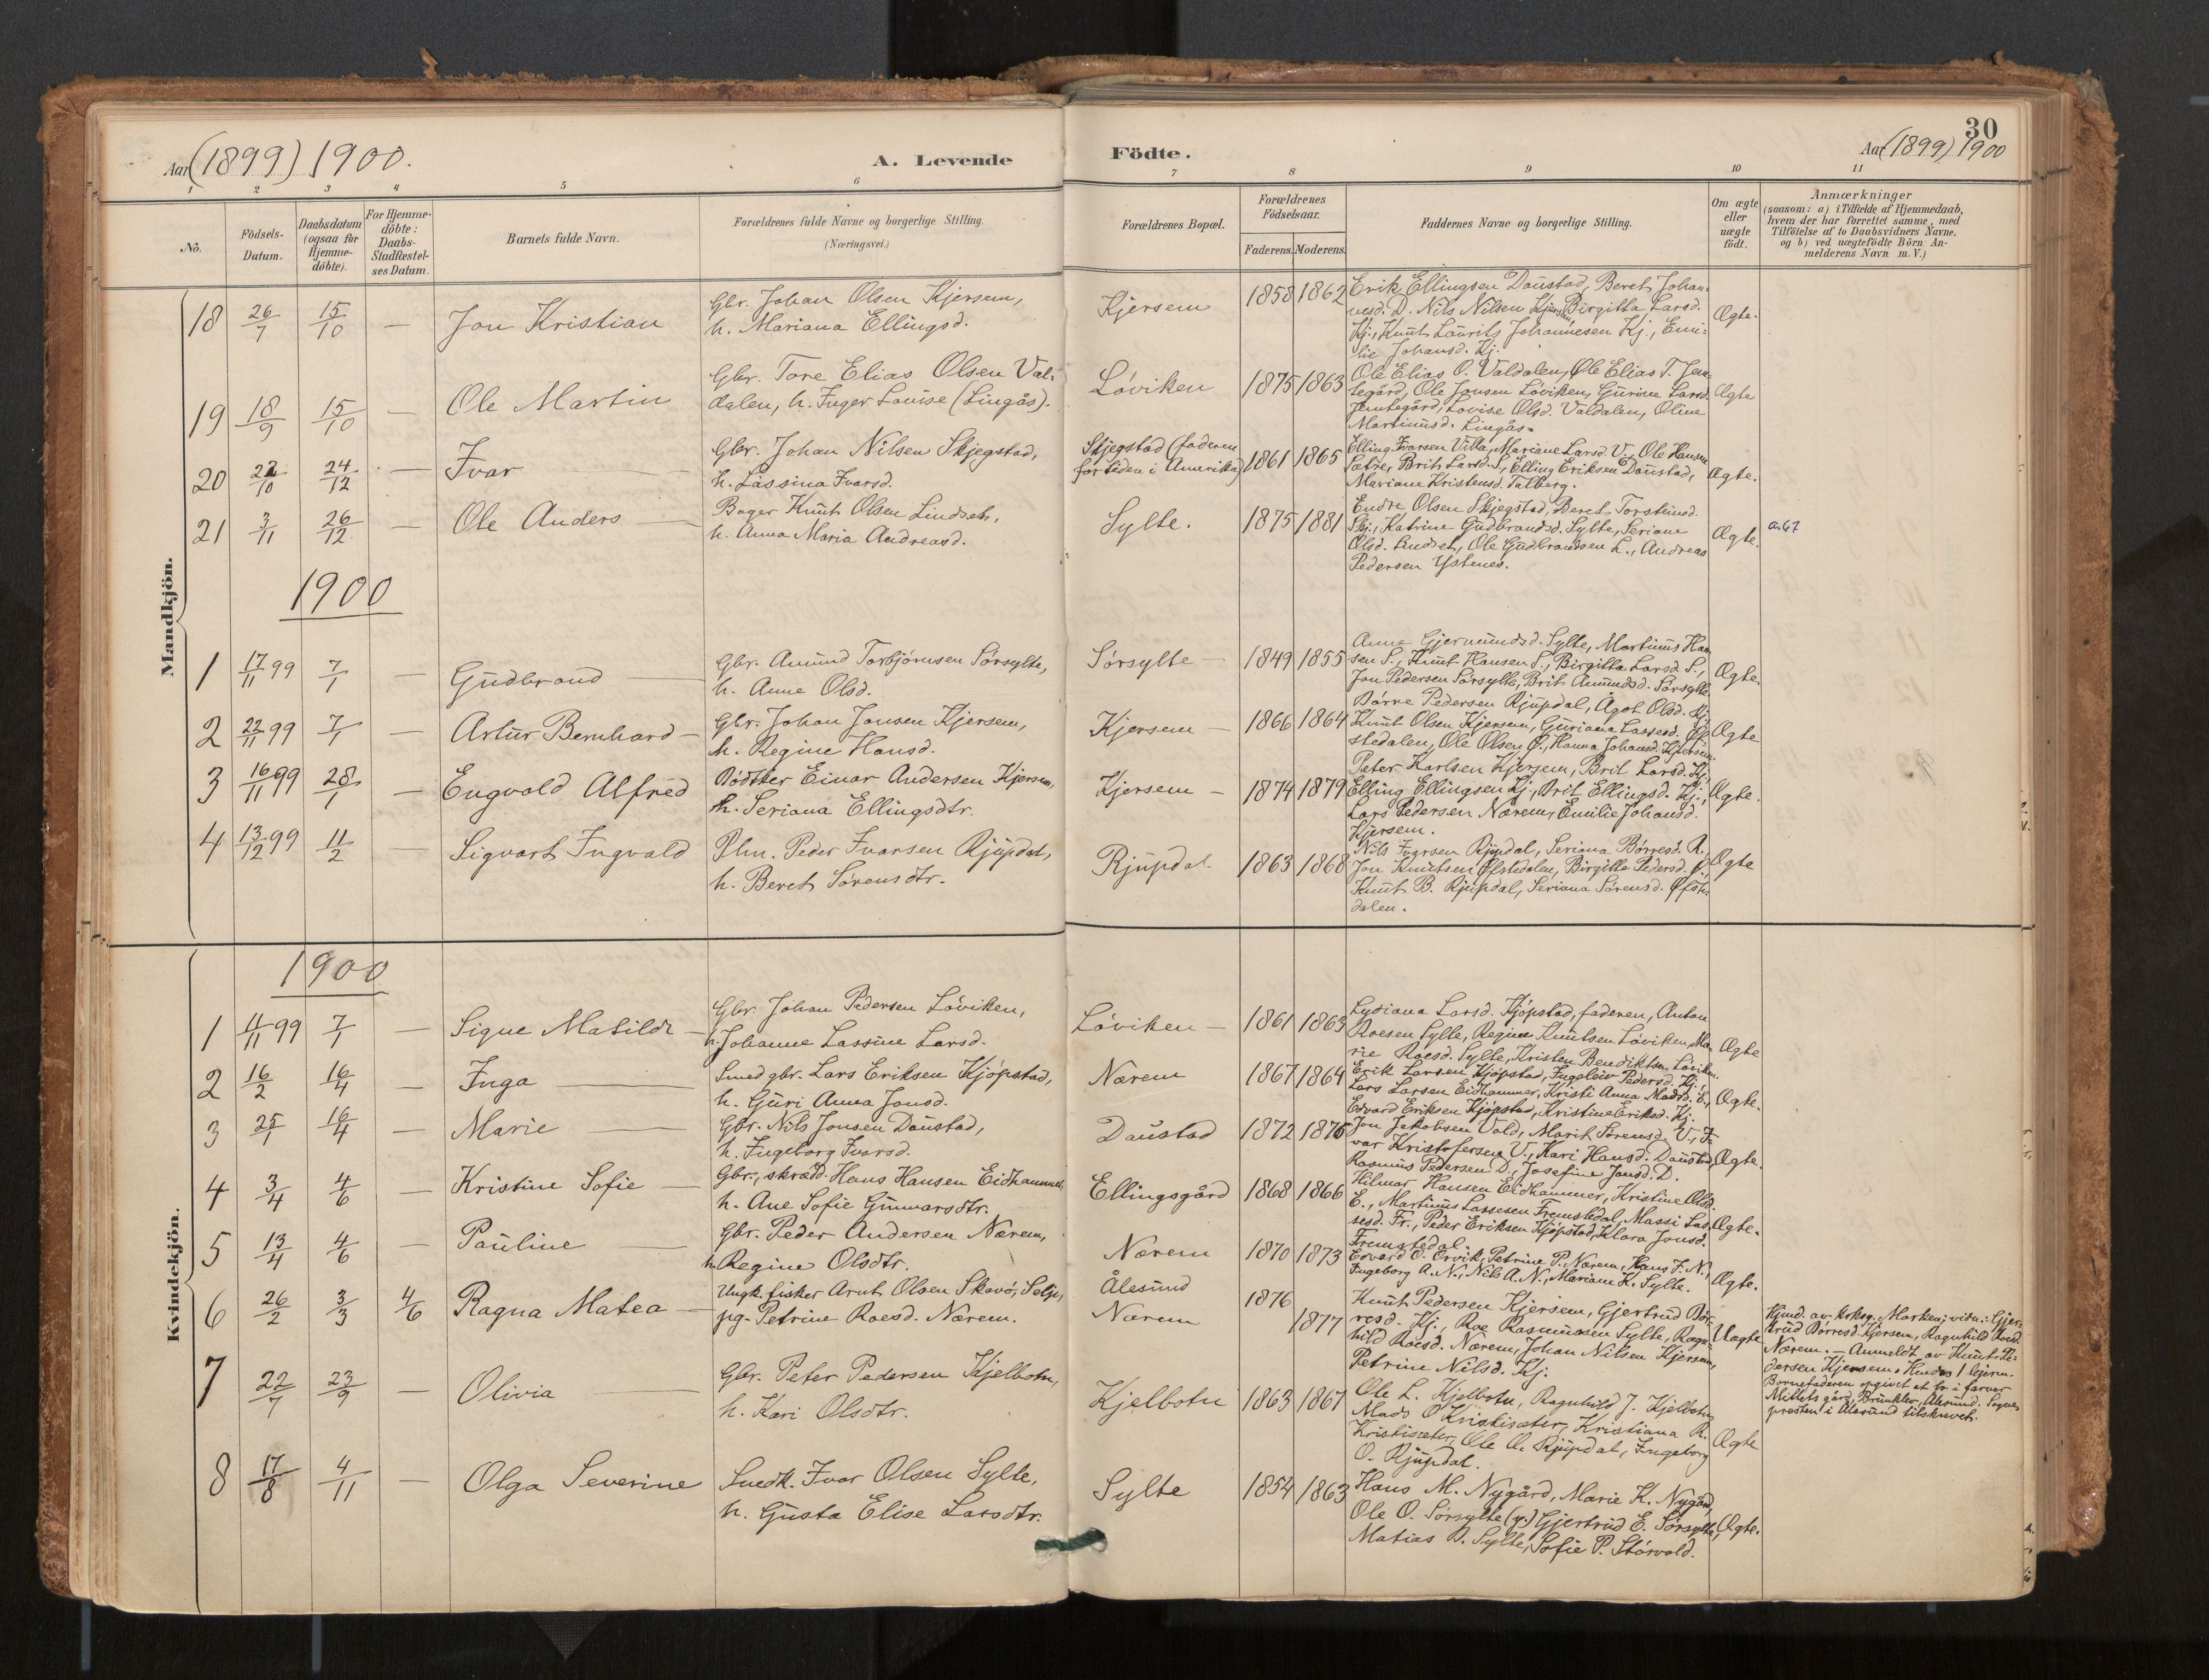 30
Aar (1899) 1900.
A. Levende
Födte.
Aar (1899) 1900
1 2 3 4 5 6 7 8 9 10 11
No.
Födsels-
Datum.
Daabsdatum
(ogsaa for
Hjemme-
döbte).
For Hjemme-
döbte:
Daabs-
Stadfæstel-
ses Datum.
Barnets fulde Navn.
Forældrenes fulde Navne og borgerlige Stilling.
(Næringsvei.)
Forældrenes Bopæl.
Forældrenes
Födselsaar.
Faderens. Moderens.
Faddernes Navne og borgerlige Stilling.
Om ægte
eller
uægte
födt.
Anmærkninger
(saasom: a) i Tilfælde af Hjemmedaab,
hvem der har forrettet samme, med
Tilföielse af to Daabsvidners Navne,
og b) ved uægtefödte Börn An-
melderens Navn m. V.)
Mandkjön.
18 26/7 15/10 — Jon Kristian
Gbr. Johan Olsen Kjersem,
h. Mariana Ellingsd.
Kjersem 1858 1862
Erik Ellingsen Daustad, Beret Johan-
nesd. D. Nils Nilsen Kjersem, Birgitta Larsd.
Kj., Knut Laurits Johannesen Kj., Emi-
lie Johansd. Kj.
Ægte.
19 18/9 15/10 — Ole Martin
Gbr. Tore Elias Olsen Val-
dalen, h. Inger Louise (Lingås).
Løviken 1875 1863
Ole Elias O. Valdalen, Ole Elias T. Jem-
tegård, Ole Jonsen Løviken, Gurine Larsd.
Jemtegård, Lovise Olsd. Valdalen, Oline
Martinusd. Lingås.
Ægte
20 22/10 24/12 — Ivar
Gbr. Johan Nilsen Skjegstad,
h. Lassina Ivarsd.
Skjegstad (faderen
for tiden i Amerika) 1861 1865
Elling Ivarsen Villa, Mariane Larsd. V., Ole Hansen
Sætre, Brit Larsd. S., Elling Eriksen Daustad,
Mariane Kristensd. Talberg.
Ægte.
21 3/11 26/12 — Ole Anders
Bager Knut Olsen Lindset,
h. Anna Maria Andreasd.
Sylte. 1875 1881
Endre Olsen Skjegstad, Beret Torsteinsd.
Sk., Katrine Gudbrandsd. Sylte, Seriane
Olsd. Lindset, Ole Gudbrandsen L., Andreas
Pedersen Ystenes.
Ægte.
a.67
1900
1 17/11 99 7/1 — Gudbrand
Gbr. Amund Torbjørnsen Sørsylte,
h. Anne Olsd.
Sørsylte — 1849 1855
Anne Gjermundsd. Sylte, Martinus Han-
sen S., Knut Hansen S., Birgitta Larsd. S.,
Jon Pedersen Sørsylte, Brit Amundsd. Sørsylte.
Ægte.
2 22/11 99 7/1 — Artur Bernhard
Gbr. Johan Jonsen Kjersem,
h. Regine Hansd.
Kjersem — 1866 1864
Børre Pedersen Rjupdal, Ågot Olsd. Kj.,
Knut Olsen Kjersem, Guriana Lassesd. Øf-
stedalen, Ole Olsen Ø., Hanna Johansd. Kjersem.
Ægte
3 16/11 99 28/1 — Engvald Alfred
Bødtker Einar Andersen Kjersem,
h. Seriana Ellingsdtr.
Kjersem — 1874 1879
Peter Karlsen Kjersem, Brit Larsd. Kj.,
Elling Ellingsen Kj., Brit Ellingsd. Kj.,
Lars Pedersen Nærem, Emilie Johansd.
Kjersem.
Ægte.
4 13/12 99 11/2 — Sigvart Ingvald
Plm. Peder Ivarsen Rjupdal,
h. Beret Sørensdtr.
Rjupdal 1863 1868
Nils Ivarsen Rjupdal, Seriana Børresd. R.
Jon Knutsen Øfstedalen, Birgitte Pedersd. Ø.,
Knut B. Rjupdal, Seriana Sørensd. Øfste-
dalen.
Ægte
Kvindekjön.
1900
1 11/11 99 7/1 — Signe Matilde
Gbr. Johan Pedersen Løviken,
h. Johanne Lassine Larsd.
Løviken — 1861 1863
Lydiana Larsd. Kjøpstad, faderen, Anton
Roesen Sylte, Regine Knutsen Løviken, Ma-
rie Roesd. Sylte, Kristen Bendiktsen Løviken.
Ægte
2 16/2 16/4 — Inga
Smed gbr. Lars Eriksen Kjøpstad,
h. Guri Anna Jonsd.
Nærem 1867 1864
Erik Larsen Kjøpstad, Ingeleiv Pedersd. Kj.,
Lars Larsen Eidhammer, Kristi Anna Madsd. E.,
Edvard Eriksen Kjøpstad, Kristine Eriksd. Kj.
Ægte.
3 25/1 16/4 — Marie
Gbr. Nils Jonsen Daustad,
h. Ingeborg Ivarsd.
Daustad 1872 1876
Jon Jakobsen Vold, Marit Sørensd. V., I-
var Kristofersen V., Kari Hansd. Daustad,
Rasmus Pedersen D., Josefine Jonsd. D.
Ægte.
4 3/4 4/6 — Kristine Sofie
Gbr., skrædd. Hans Hansen Eidhammer,
h. Ane Sofie Gunnarsdtr.
Ellingsgård 1868 1866
Hilmar Hansen Eidhammer, Kristine Olsd.
E., Martinus Lassesen Fremstedal, Massi Las-
sesd. Fr., Peder Eriksen Kjøpstad, Klara Jonsd.
Fremstedal.
Ægte.
5 13/4 4/6 — Pauline
Gbr. Peder Andersen Nærem,
h. Regine Olsdtr.
Nærem 1870 1873
Edvard O. Ørvik, Petrine P. Nærem, Hans J. N.,
Ingeborg A. N., Nils A. N., Mariane K. Sylte.
Ægte.
6 26/2 3/3 4/6 Ragna Matea
Ungk. fisker Arnt Olsen Skavø, Selje,
pg. Petrine Roesd. Nærem.
Ålesund
Nærem
1876
1877
Knut Pedersen Kjersem, Gjertrud Bør-
resd. Kj., Roe Rasmussen Sylte, Ragn-
hild Roesd. Nærem, Johan Nilsen Kjersem,
Petrine Nilsd. Kj.
Uægte
Hjmd. av krksg. Marken; vidn.: Gjer-
trud Børresd. Kjersem, Ragnhild Roesd.
Nærem. — Anmeldt av Knut Pe-
dersen Kjersem. Hendes 1 lejerm.
Barnefaderen opgivet at bo i farver
Mittets gård, Brunklev, Ålesund. Sogne-
presten i Ålesund tilskrevet.
7 22/7 23/9 — Olivia
Gbr. Peter Pedersen Kjelbotn,
h. Kari Olsdtr.
Kjelbotn 1863 1867
Ole L. Kjelbotn, Ragnhild J. Kjelbotn,
Mads O Kristisæter, Kristiana R.
Kristisæter, Ole O. Rjupdal, Ingeborg
O. Rjupdal.
Ægte
8 17/8 4/11 — Olga Severine
Snedk. Ivar Olsen Sylte,
h. Gusta Elise Larsdtr.
Sylte 1854 1863
Hans M. Nygård, Marie K. Nygård,
Ole O. Sørsylte (y.) Gjertrud E. Sørsylte,
Matias B. Sylte, Sofie P. Størvold.
Ægte.